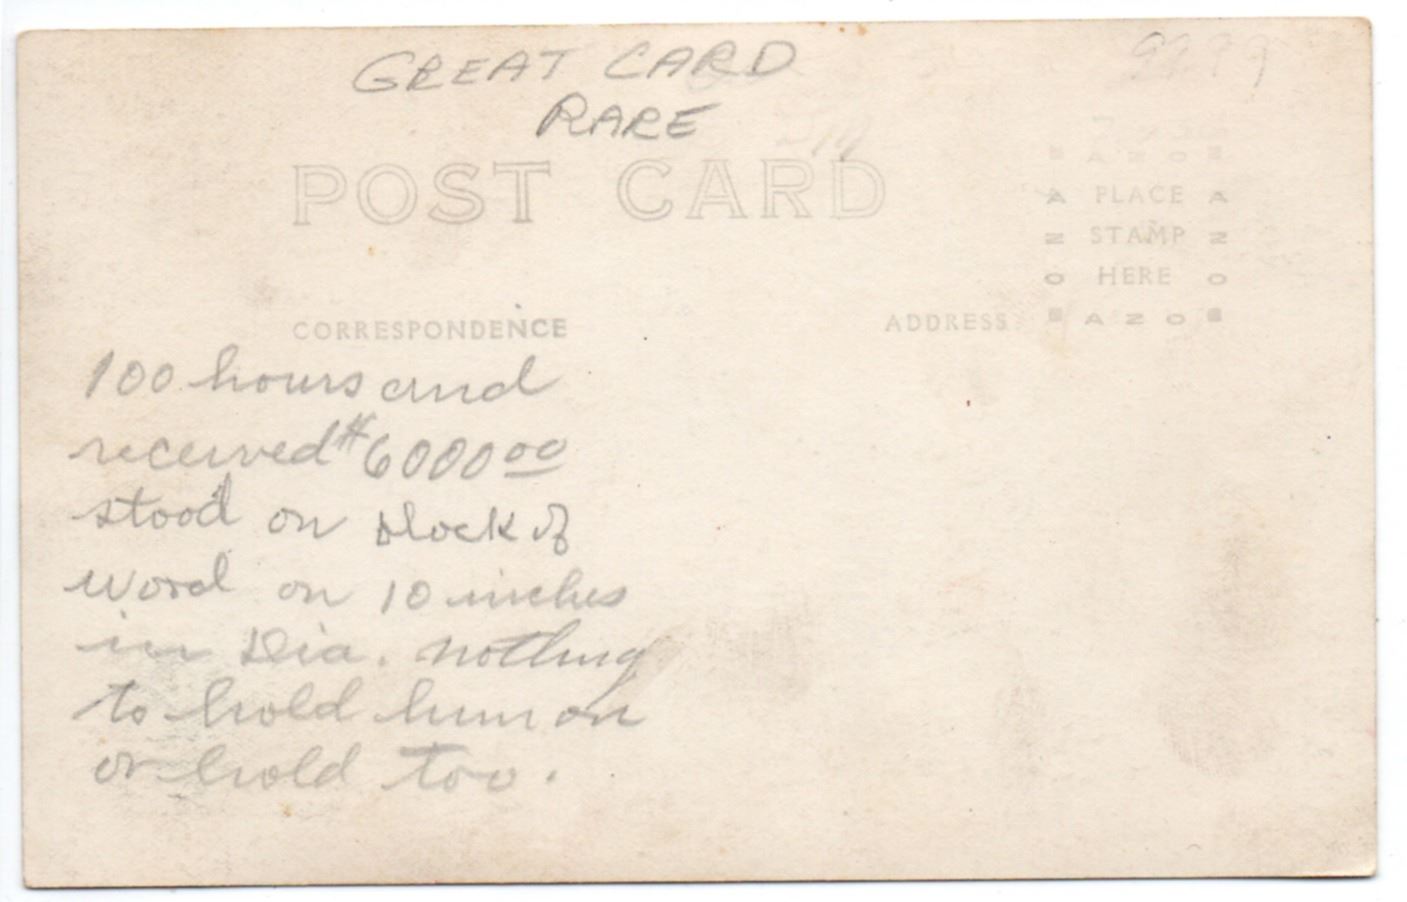 GREAT CARD
RARE
POST CARD
AZO
A PLACE A
Z STAMP Z
O HERE O
AZO
CORRESPONDENCE
ADDRESS
100 hours and
received $6000 00
stood on block of
wood on 10 inches
in Dia. nothing
to hold him on
or hold too.